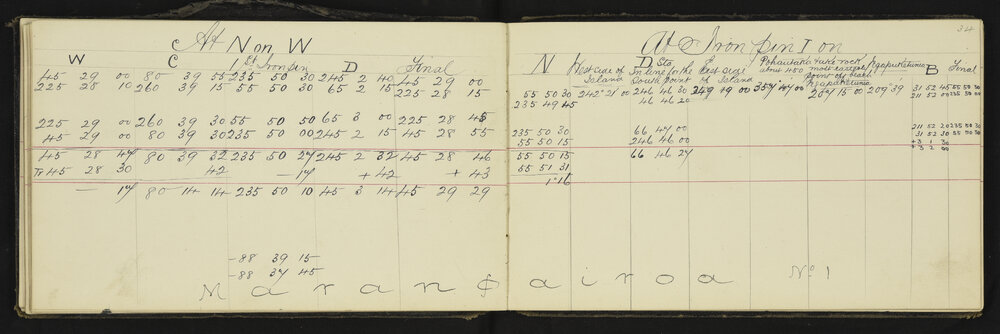 At N on W
W C 1st Iron pin D Final
45 29 00 80 39 55 235 50 30 245 2 40 45 29 00
225 28 10 260 39 15 55 50 30 65 2 15 225 28 15
225 29 00 260 39 30 55 50 50 65 3 00 225 28 45
45 29 00 80 39 30 235 50 00 245 2 15 45 28 55
45 28 47 80 39 32 235 50 27 245 2 32 45 28 46
Tr 45 28 30 42 - 17 + 42 + 43
- 17 80 14 14 235 50 10 45 3 14 45 29 29
- 88 39 15
- 88 37 45
34
At Iron pin I on
N West side of Island D Stn In line for the South point East side of Island Pohautaha rake rock about 450 most eastern point of beach B Final
55 50 30 242 21 00 246 46 30 249 49 00 357 44 00 237 15 00 209 39 31 52 45 55 50 30
235 49 45 46 46 20 211 52 00 235 50 30
235 50 30 66 47 00 211 52 20 235 50 30
55 50 15 246 46 00 31 52 30 55 50 30
+3 1 30
55 50 15 66 46 27 +3 2 00
55 51 31
1·16
Marangairoa No 1